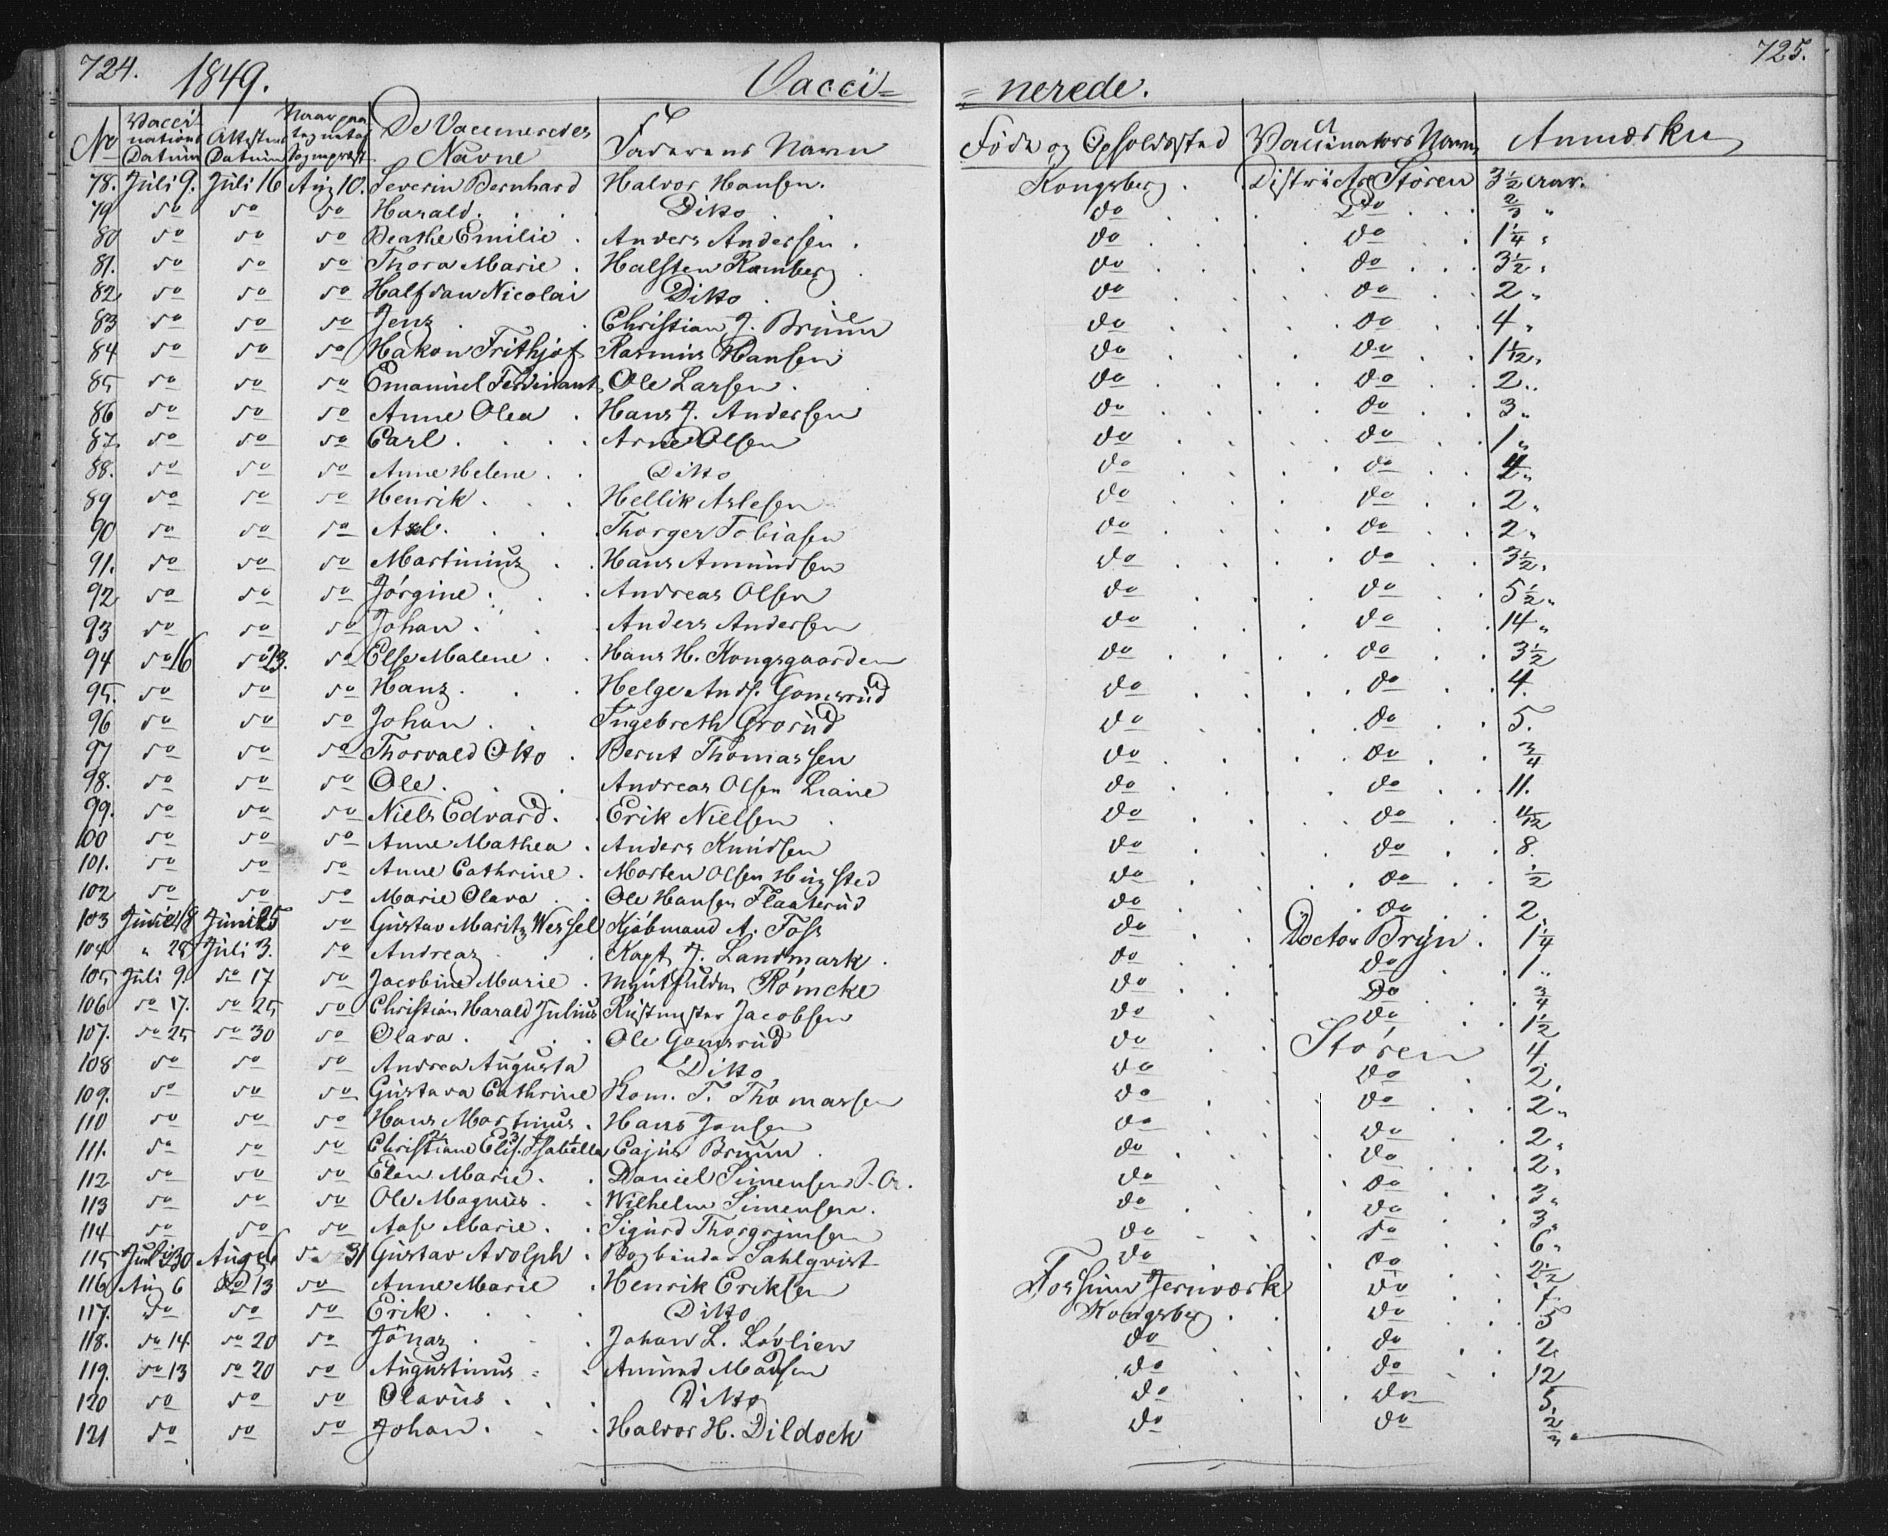 724. 1849. Vacci= =nerede. 725.
No Vacci-nations Datum Attestens Datum De Vaccineredes Navne Faderens Navn Føde og Opholdssted Vaccinators Navn Anmærkn
78. Juli 9. Juli 16 Aug 10. Severin Bernhard Halvor Hansen. Kongsberg. Districtsl Støren 3½ aar.
79 do do do Harald. Ditto do Do 2/3 "
80 do do do Beathe Emilie. Anders Andersen. do do 1¼ "
81. do do do Thora Marie. Halsten Ramberg do do 3½ "
82 do do do Halfdan Nicolai Ditto do do 2 "
83 do do do Jens. Christian J. Bruun do do 4 "
84 do do do Hakon Frithjof Rasmus Hansen do do 1½ "
85 do do do Emanuel Ferdinant Ole Larsen. do do 2 "
86 do do do Anne Olea. Hans J. Andersen do do 3 "
87. do do do Carl. Arne Olsen do do 1 "
88. do do do Anne Helene. Ditto do do 4 "
89 do do do Henrik. Hellik Aslesen do do 2 "
90 do do do Axel. Thorger Tobiasen do do 2 "
91. do do do Martinius. Hans Amundsen do do 3½ "
92 do do do Jørgine. Andreas Olsen do do 5½ "
93 do do do Johan. Anders Andersen do do 14 "
94 do 16 do 23. do Else Malene. Hans H. Kongsgaarden do do 3½
95. do do do Hans. Helge Ands. Gomsrud do do 4.
96 do do do Johan. Ingebreth Grosrud do do 5.
97 do do do Thorvald Otto. Bernt Thomassen do do 3/4
98. do do do Ole. Andreas Olsen Liane do do 11.
99. do do do Niels Edvard. Erik Nielsen do do
100 do do do Anne Mathea. Anders Knudsen do do 8.
101. do do do Anne Cathrine. Morten Olsen Hingsted do do ½
102 do do do Marie Olava. Ole Hansen Flaaterud do do 2.
103 Juni 18 Juni 25 do Gustav Maritz Wessel Kjøbmand A. Foss do Doctor Bryn. 1¼
104 " 28 Juli 3. do Andreas. Kapt. J. Landmark. do do 1 "
105 Juli 9. do 17 do Jacobine Marie. Myntfuldm Römcke do Do 3/4
106 do 17. do 25 do Christian Harald Julius Rustmester Jacobsen do do 1½
107. do 25 do 30 do Olava. Ole Gomsrud do Støren 4.
108 do do do Andrea Augusta Ditto do do 2.
109. do do do Gustava Cathrine Kom. T. Thomassen do do 2 "
110 do do do Hans Martinus. Hans Jensen do do 2 "
111. do do do Christiane Elis. Isabella Cajus Bruun. do do 2.
112 do do do Elen Marie. Daniel Simensen do do 3 "
113 do do do Ole Magnus. Wilhelm Simensen. do do 3 "
114 do do do Aase Marie. Sigurd Thorgrimsen do do 6 "
115 Juli 30 Aug 6 do 31 Gustav Adolph. Bogbinder Sahlqvist do do 2½
116 Aug 6 do 13 do Anne Marie. Henrik Eriksen Fossum Jernværk do
117. do do do Erik. Ditto Kongsberg. do
118. do 14 do 20 do Jonas. Johan L. Løvlien do do 2
119. do 13 do 20 do Augustinus. Amund Madsen do do 12
120 do do do Olavus. Ditto do do 5.
121 do do do Johan. Halvor H. Dildock do do 2/3